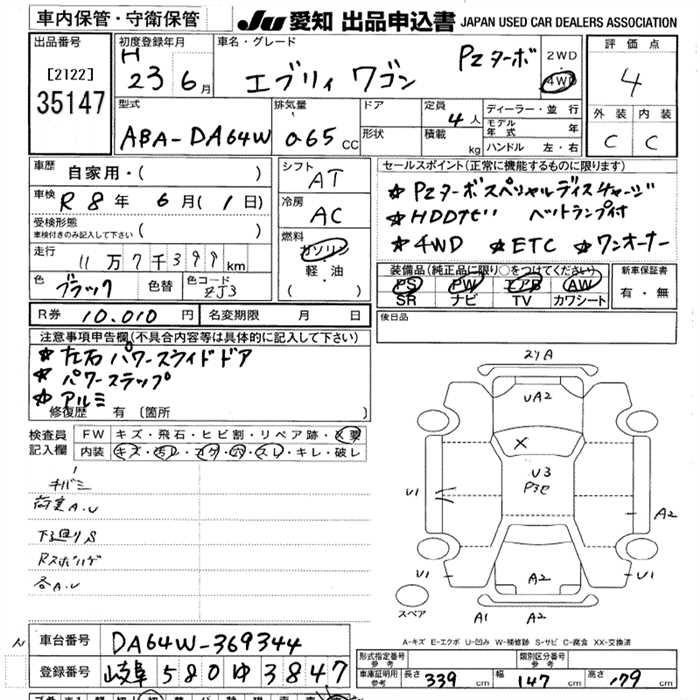 車内保管・守衛保管
JU 愛知 出品申込書 JAPAN USED CAR DEALERS ASSOCIATION
出品番号
[2122]
35147
初度登録年月
H
23 6月
車名・グレード
エブリィ ワゴン PZターボ
2WD
4WD
評価点
4
外装 内装
C C
型式
ABA-DA64W
排気量
0.65 CC
ドア
形状
定員
4人
積載 kg
ディーラー・並行
モデル年式 年
ハンドル 左・右
車歴
自家用・( )
車検
R 8年 6月(1日)
受検形態
車検付きのみ記入して下さい ( )
走行
11万7千399km
色
ブラック
色替
色コード
ZJ3
シフト
AT
冷房
AC
燃料
ガソリン
軽・油
( )
R券 10.010円
名変期限 月 日
セールスポイント(正常に機能するものに限ります)
★PZターボスペシャルディスチャージ
★HDDナビ ヘットランプ付
★4WD ★ETC ★ワンオーナー
装備品(純正品に限り○をつけてください)
PS PW エアB AW
SR ナビ TV カワシート
新車保証書
有・無
後日品
注意事項申告欄(不具合内容等は具体的に記入して下さい)
★左右パワースライドドア
★パワーステップ
★アルミ
修復歴 有 〔箇所
検査員記入欄
FW キズ・飛石・ヒビ割・リペア跡・X要
内装 キズ・汚レ・コゲ・穴・スレ・キレ・破レ
荷室A.U
下廻りS
各A.U
27A
UA2
X
U3
U1
A2
U1
A2
U1
A1 A2
スペア
A-キズ E-エクボ U-凹み W-補修跡 S-サビ C-腐食 XX-交換済
車台番号 DA64W-369344
登録番号 岐阜 580 ゆ 3847
形式指定番号
参考
類別区分番号
参考
車庫証明用
参考
長さ 339 cm 幅 147 cm 高さ 179 cm